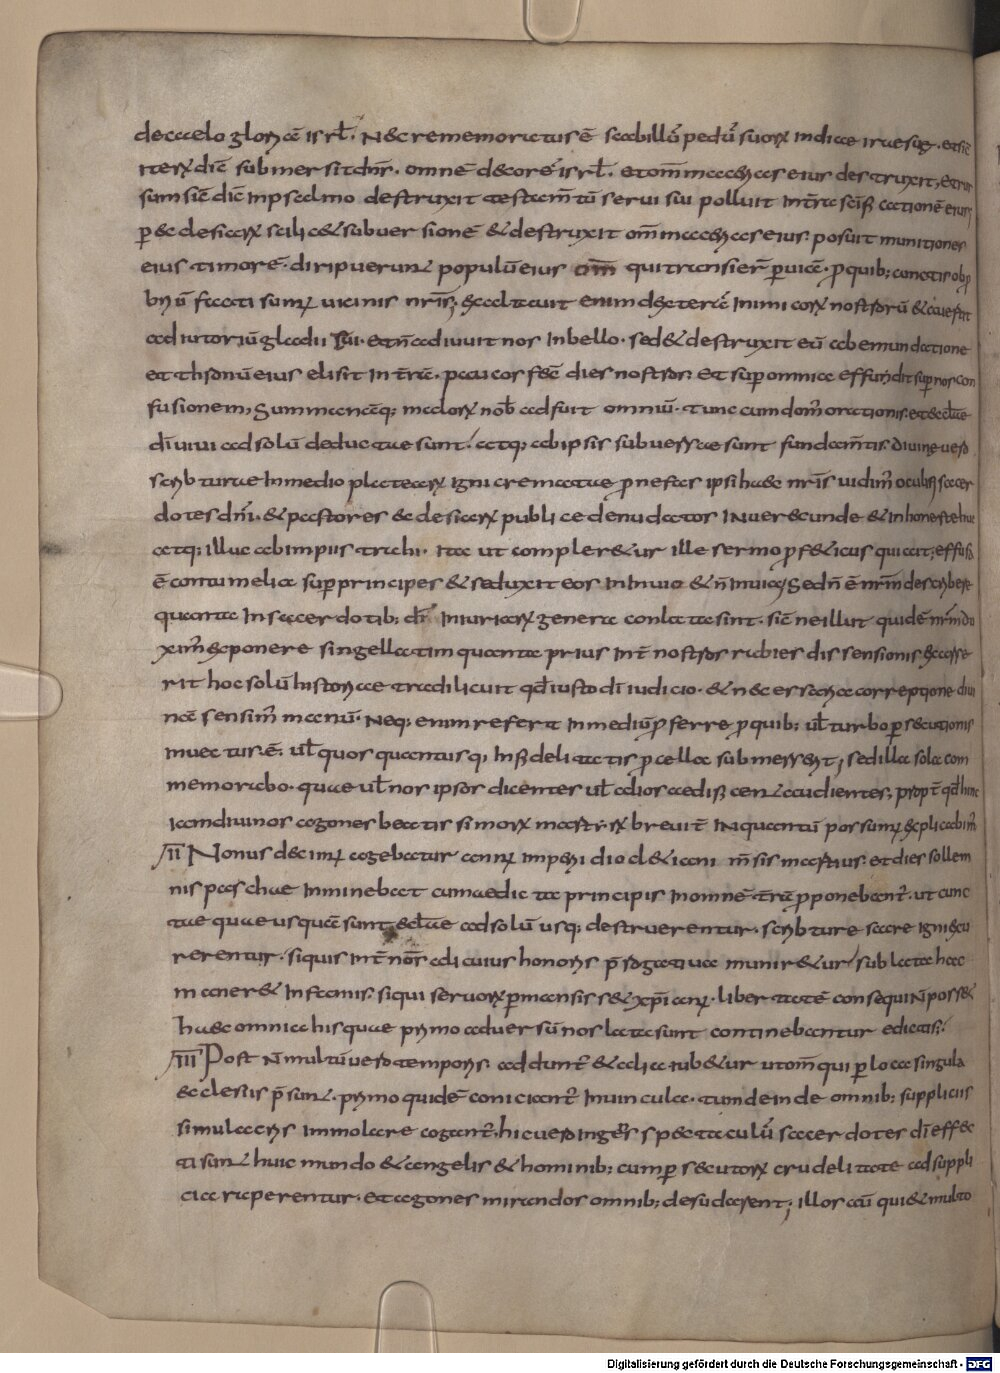 de caelo gloriā isrł. Nec rememoratus ē scabillū pedū suorꝝ in dica irae suę. et sic
iterꝝ dic̄ submersit dn̄s. omnē decorē isrł. et om̄ macerias eius destruxit. et rur
sum sic̄ dic̄ in psalmo destruxit testam̄tū servi sui polluit in t̄ra scīficationē eius
ꝑ ecclesiarꝝ scilicet subversionē & destruxit om̄ macerias eius. posuit munitiones
eius timorē. diripuerunt populū eius om̄ qui transier̄ ꝑ viā. ꝓ quib; cunctis obꝓ
briū facti sumꝰ vicinis nr̄is; exaltavit enim dexterā inimicorꝝ nostrorū & avertit
adiutoriū gladii sui. et n̄ adiuvit nos in bello. sed & destruxit eū ab emundatione
et thronū eius elisit in t̄ra. pauciores fec̄ dies nostros. et suꝑ omnia effundit suꝑ nos con
fusionem; Summaneq; malorꝝ nob̄ adfuit omniū. tunc cum dom̄ orationis. et ecclae
dī vivi ad solū deductae sunt. atq; ab ipsis subversae sunt fundam̄tis. divine vero
scripturae in medio platearꝝ igni crematae ꝓ nefas ipsi haec nr̄is vidim̄ oculis; sacer
dotes dn̄i. & pastores ecclesiarꝝ publice denudatos inverecunde & inhoneste huc
atq; illuc ab impiis trahi. ita ut compleretur ille sermo ꝓfeticus qui ait; effusa
ē contumelia suꝑ principes & seduxit eos in invio & n̄ in via; Sed n̄ ē nr̄m describere
quanta in sacerdotib; dī iniuriarꝝ genera conlata sint. sic̄ ne illut quidē nr̄m du
xim̄ exponere singellatim quanta prius int̄ nostros rabies dissensionis excesse
rit hoc solū historiae tradi licuit qđ iusto dī iudicio. & necessaria correptione divi
nā sensim̄ manū. Neq; enim refert in mediū ꝓferre ꝓ quib; uł turbo ꝑsecutionis
invectus ē. uł quos quantusq; infidelitatis ꝓcella submerserit; sed illa sola com
memorabo. quae uł nos ipsos dicentes uł alios aedificent audientes; propt̄ qđ hinc
iam divinos agones beatissimorꝝ martyrꝝ brevit̄ in quantū possumꝰ explicabim̄
II Nonus decimꝰ agebatur annꝰ imperi diocletiani m̄sis martius. et dies sollem
nis paschae inminebat cum edicta principis in omnē t̄rā ꝓponebant̄. ut cunc
tae quae usquā sunt ecłae ad solū usq; destruerentur. scripture sacre igni exu
rerentur. siquis int̄ nos̄ alicuius honoris p̄rogativa muniretur sublata hac
maneret infamis. siqui servorꝝ ꝑmansisset xp̄ianꝰ. libertatē consequi n̄ posset
haec omnia his quae primo adversū nos lata sunt continebantur edictis;
III Post n̄ multū vero temporis. addunt̄ & alia iubetur ut om̄ qui ꝑ loca singula
ecclesiis p̄sunt. primo quidē coniciant̄ in vincula. tum deinde omnib; suppliciis
simulacris immolare cogant̄. hic vero ingens spectaculū sacerdotes dī effec
ti sunt huic mundo & angelis & hominib; cum ꝑsecutorꝝ crudelitate ad suppli
cia raperentur. et agones mirandos omnib; desudarent; illos aū qui & multo
Digitalisierung gefördert durch die Deutsche Forschungsgemeinschaft - DFG